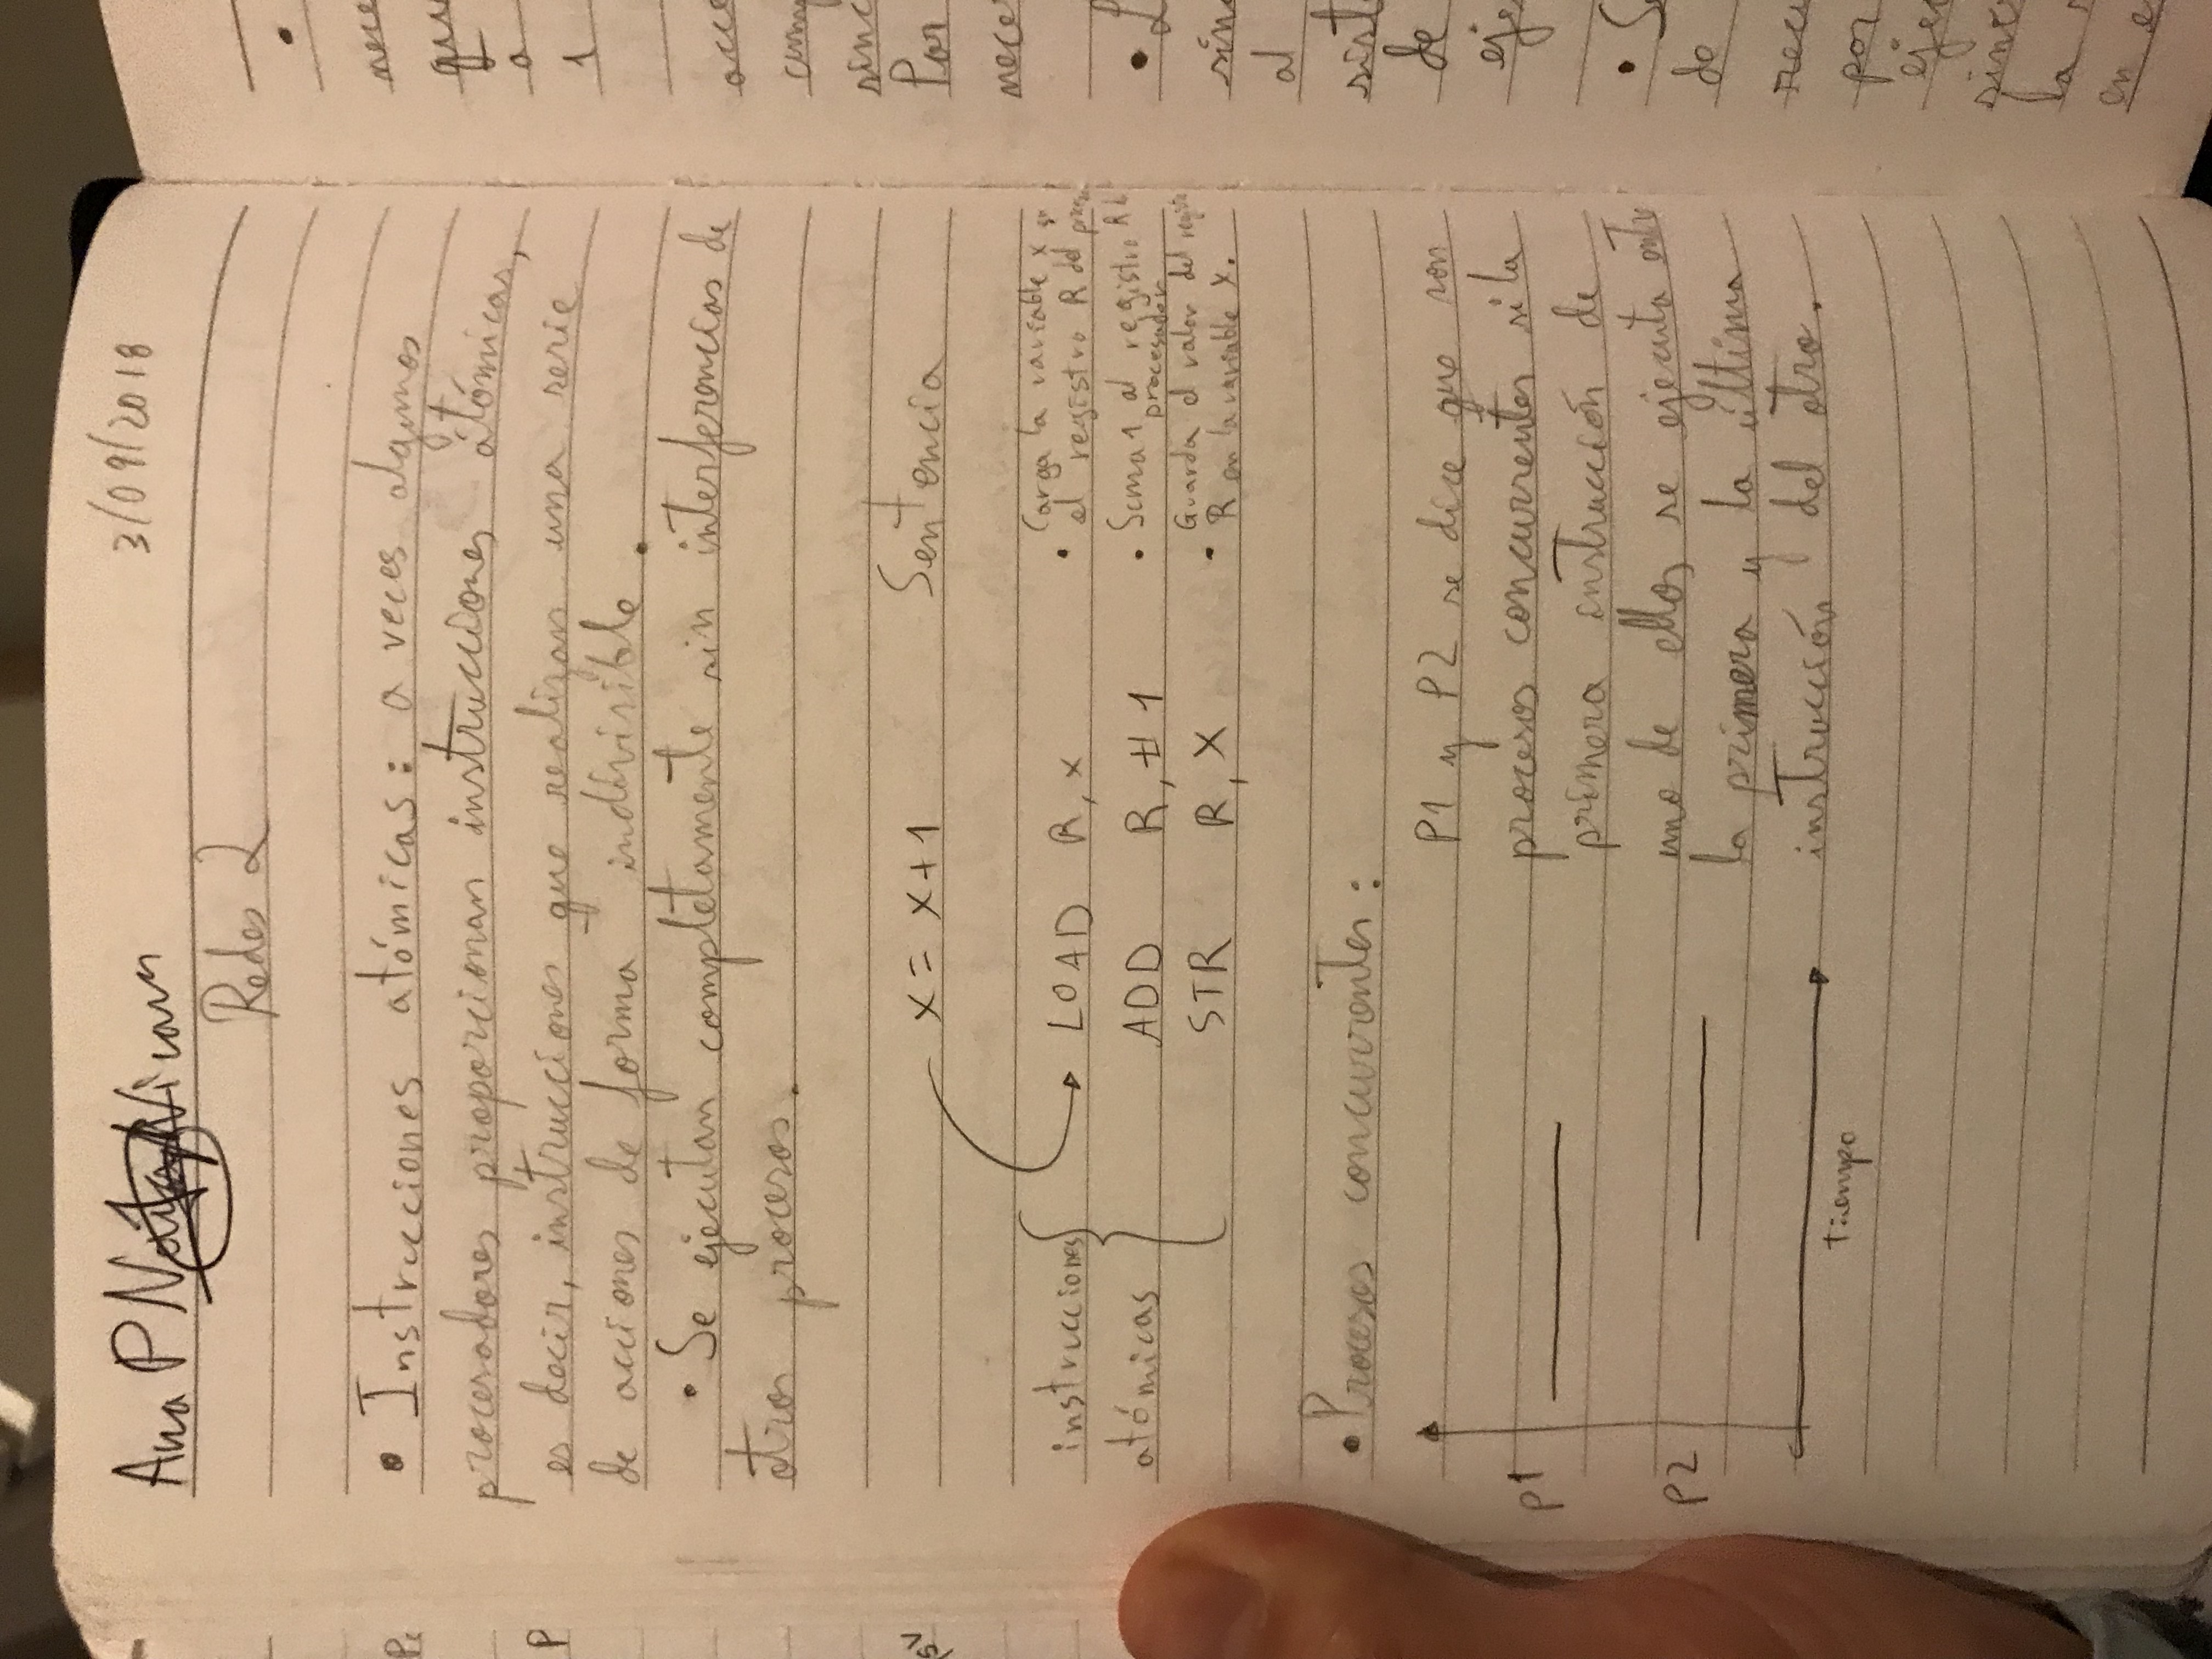 Ana P
3/09/2018
Redes 2
• Instrucciones atómicas: a veces algunos
procesadores proporcionan instrucciones atómicas,
es decir, instrucciones que realizan una serie
de acciones de forma indivisible.
• Se ejecutan completamente sin interferencias de
otros procesos.
x = x + 1 Sentencia
instrucciones
atómicas
LOAD R, x
• Carga la variable x en
el registro R del
ADD R, #1
• Suma 1 al registro R
procesador
STR R, X
• Guarda el valor del
R en la variable x.
• Procesos concurrentes:
P1
P2
tiempo
P1 y P2 se dice que son
procesos concurrentes si la
primera instrucción de
uno de ellos se ejecuta entre
la primera y la última
instrucción del otro.
Pc
P
•
nece
que
a
1
acce
sinc
Por
nece
• L
sinc
al
sist
de
eje
• Se
de
recu
por
ejec
sincr
la
en e